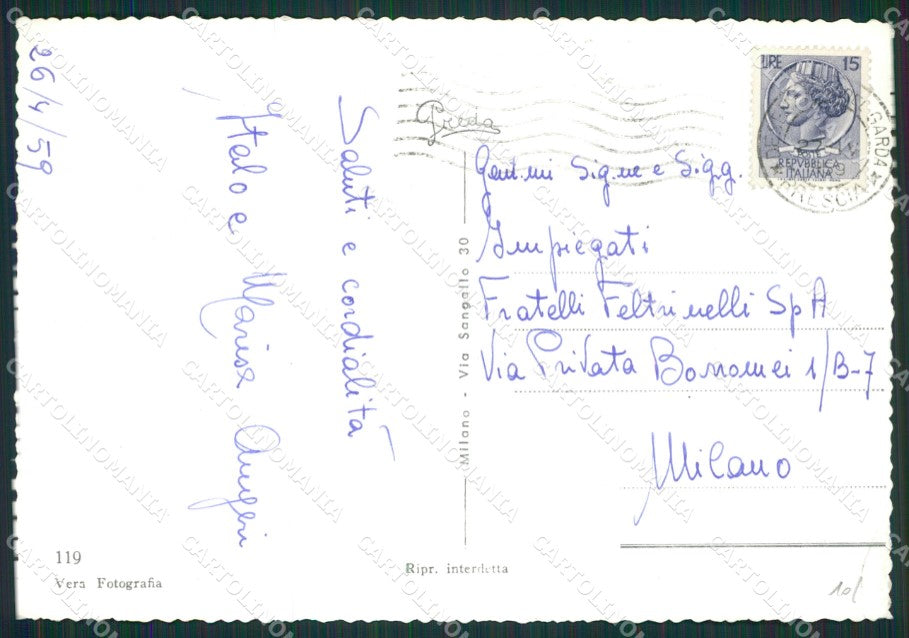 26/4/59
Saluti e cordialità
Italo e Marisa
Greda
LIRE 15
POSTE
REPVBBLICA
ITALIANA
GARDA
BRESCIA
Gent.mi Sig.ne e Sigg.
Impiegati
Fratelli Feltrinelli SpA
Via Privata Borromei 1/B-7
Milano
Milano - Via Sangallo 30
119
Vera Fotografia
Ripr. interdetta
CARTOLINOMANIA